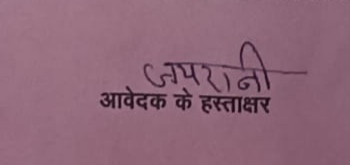 जयरानी
आवेदक के हस्ताक्षर